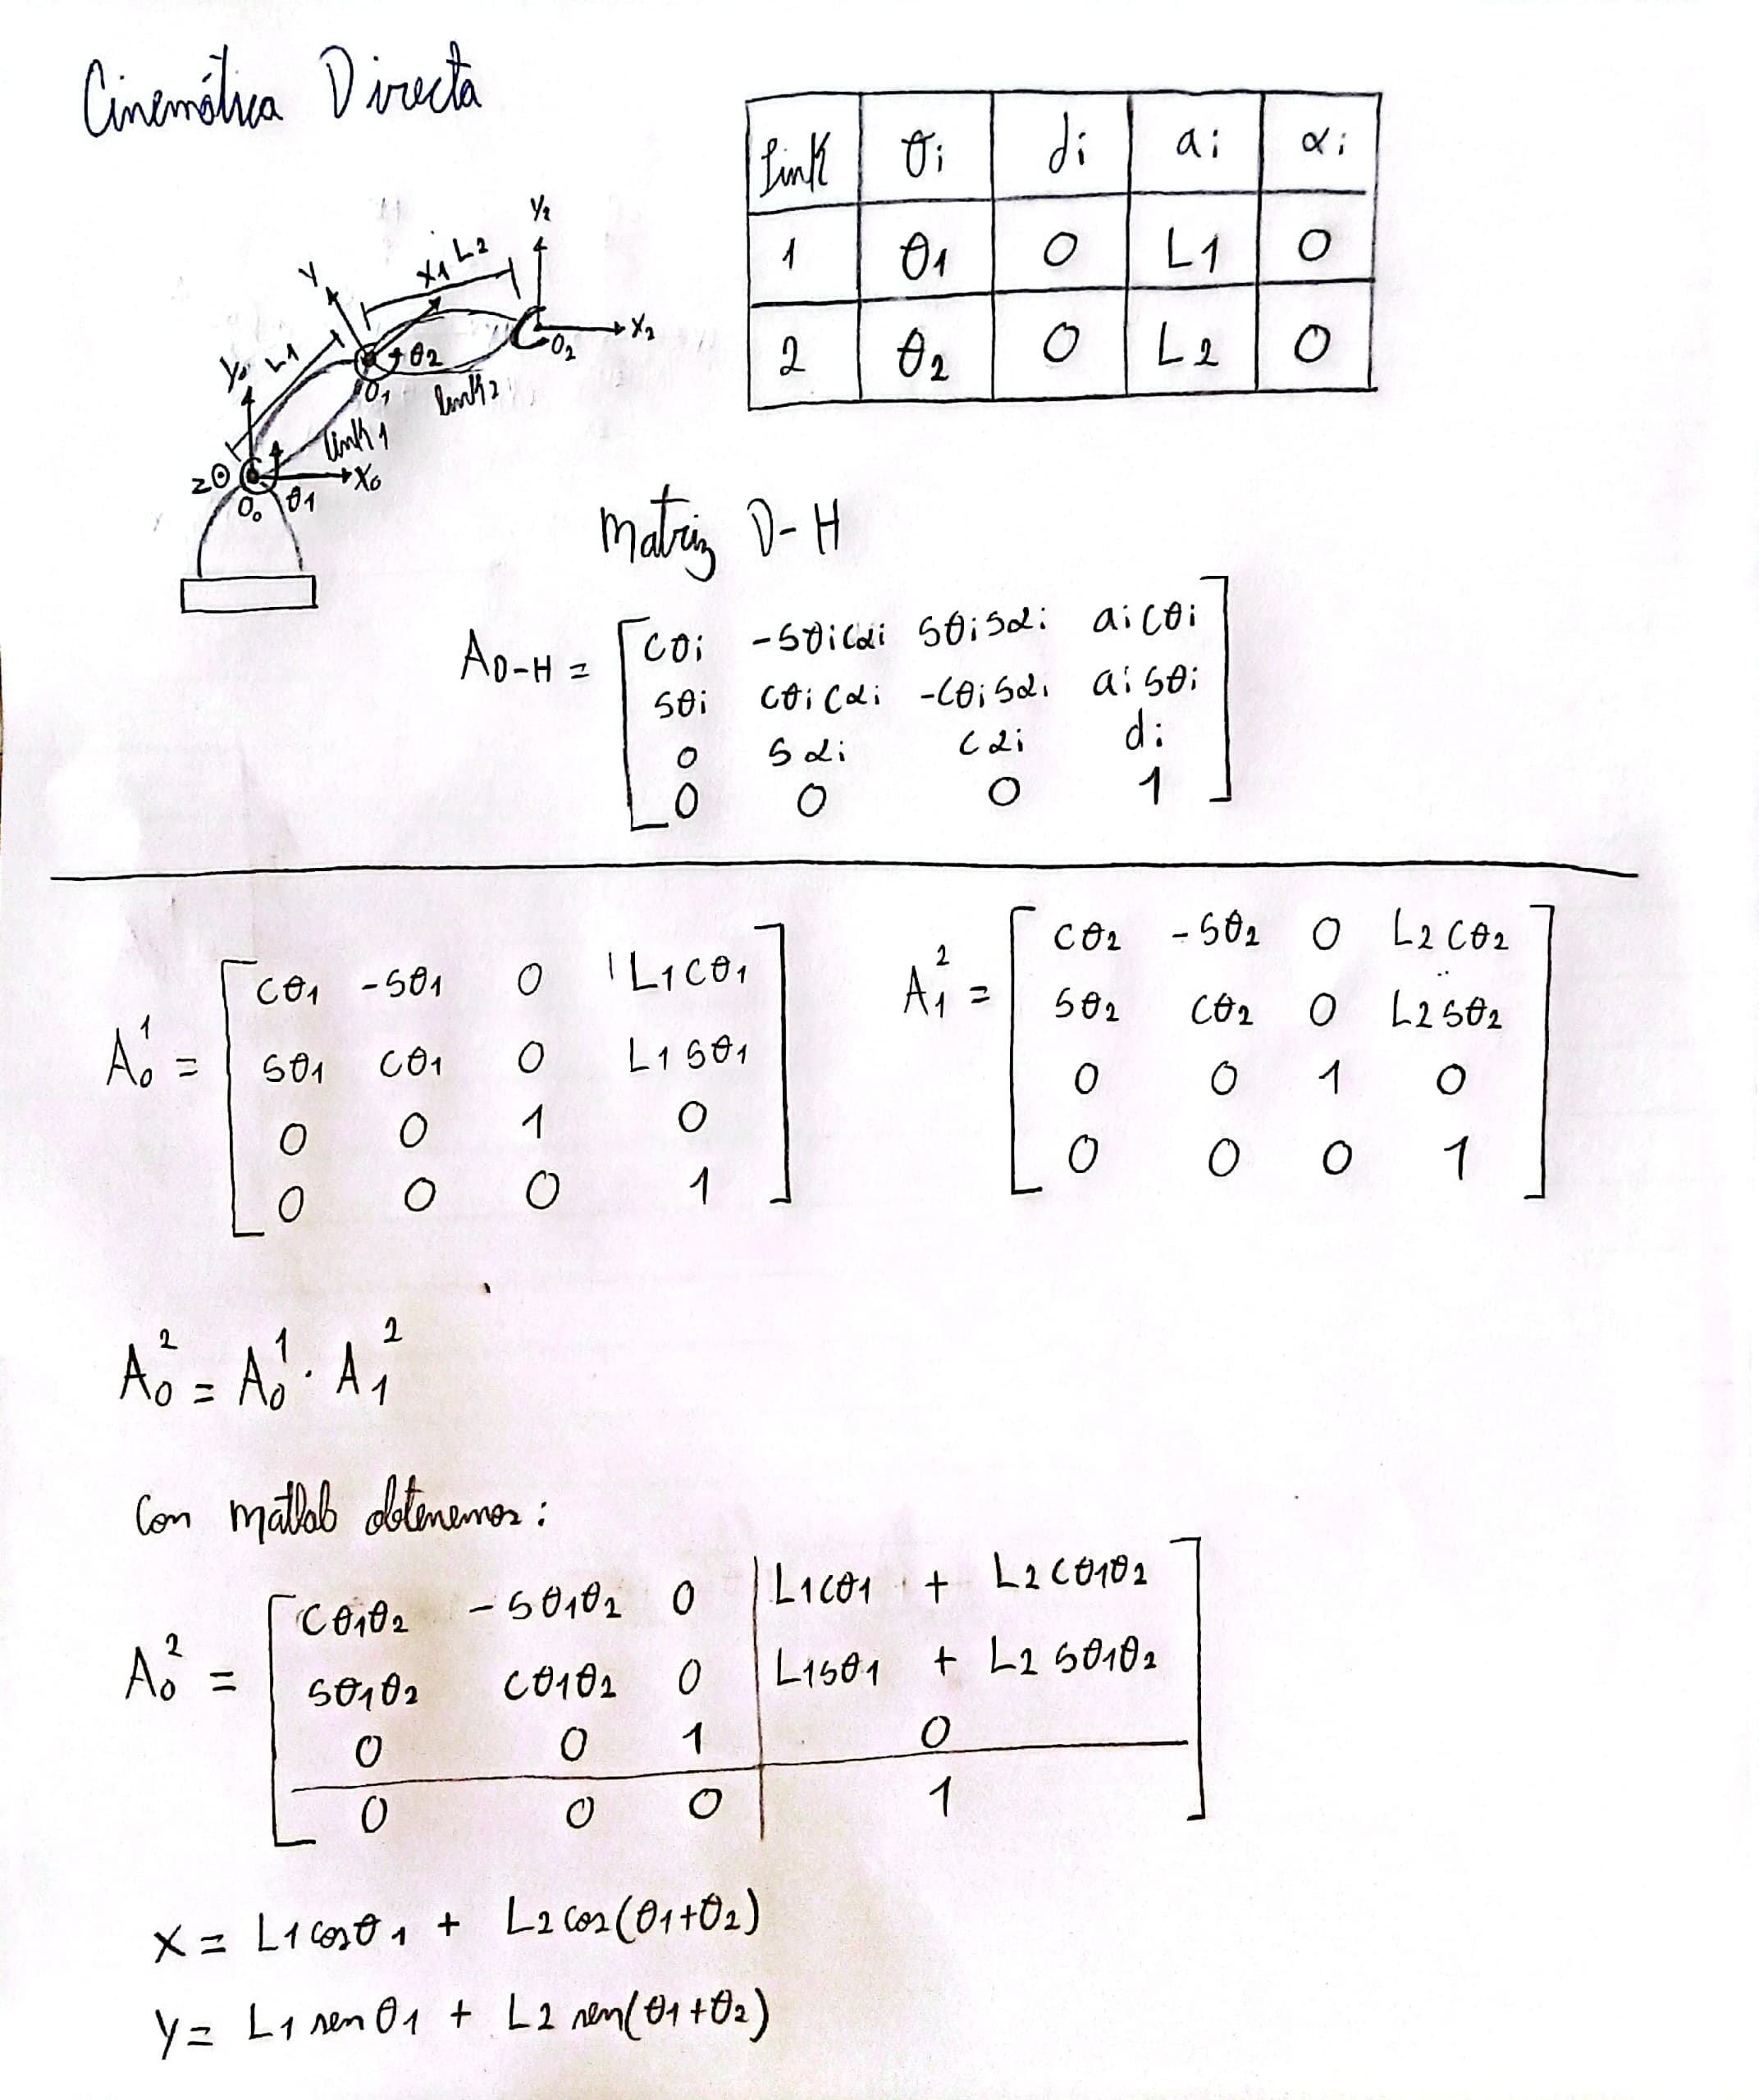 Cinemática Directa
Link θi di ai αi
1 θ1 0 L1 0
2 θ2 0 L2 0
Y2
L2
X1
Y
X2
O2
θ2
L1
Y0
O1
link 2
link 1
Z
X0
O0
θ1
Matriz D-H
A D-H = [ cθi -sθicαi sθisαi aicθi
sθi cθicαi -cθisαi aisθi
0 sαi cαi di
0 0 0 1 ]
A₀¹ = [ cθ1 -sθ1 0 L1cθ1
sθ1 cθ1 0 L1sθ1
0 0 1 0
0 0 0 1 ]
A₁² = [ cθ2 -sθ2 0 L2cθ2
sθ2 cθ2 0 L2sθ2
0 0 1 0
0 0 0 1 ]
A₀² = A₀¹ · A₁²
Con matlab obtenemos:
A₀² = [ cθ1θ2 -sθ1θ2 0 | L1cθ1 + L2cθ1θ2
sθ1θ2 cθ1θ2 0 | L1sθ1 + L2sθ1θ2
0 0 1 | 0
0 0 0 | 1 ]
X = L1cosθ1 + L2cos(θ1+θ2)
Y = L1senθ1 + L2sen(θ1+θ2)